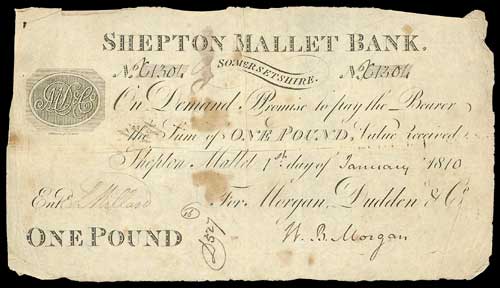 SHEPTON MALLET BANK.
SOMERSETSHIRE.
No. X1304 No. X1304
MD&Co
On Demand I Promise to pay the Bearer
the Sum of ONE POUND, Value received
Shepton Mallet 1st day of January 1810
Entd. Millard For Morgan, Dudden & Co.
ONE POUND W. B. Morgan